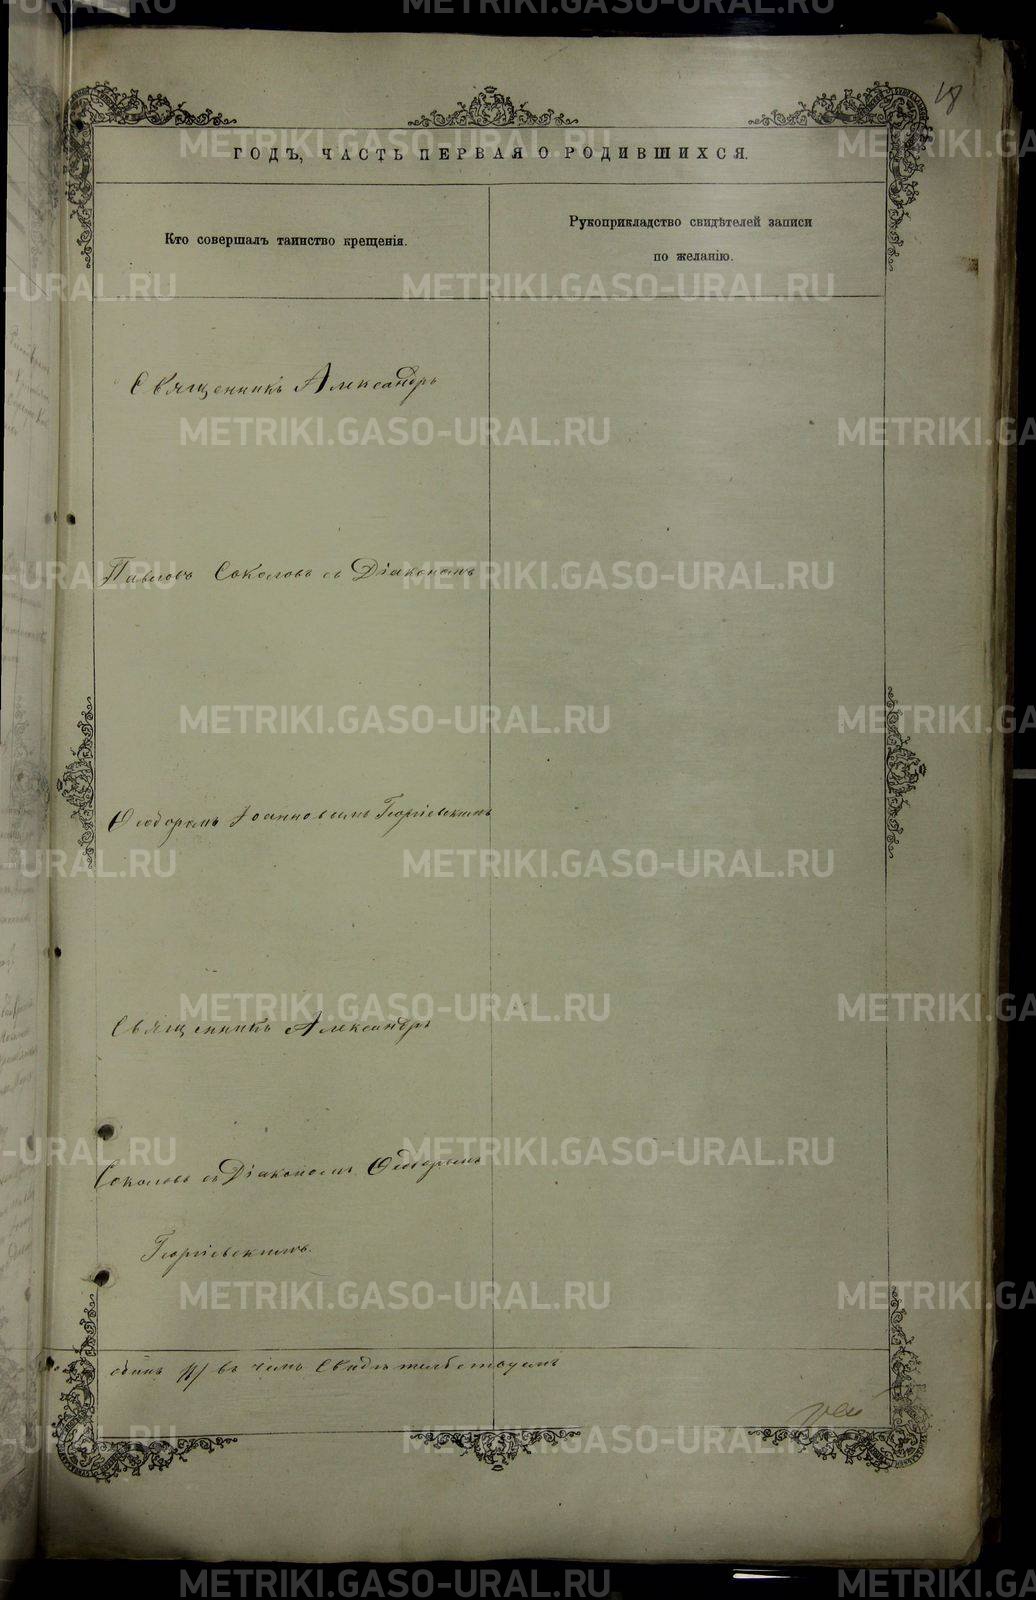 18
ГОДЪ, ЧАСТЬ ПЕРВАЯ О РОДИВШИХСЯ.
Кто совершалъ таинство крещенія.
Рукоприкладство свидѣтелей записи
по желанію.
Священникъ Александръ
Павловъ Соколовъ съ Діакономъ
Ѳеодоромъ Іоанновымъ Георгіевскимъ
Священникъ Александръ
Соколовъ съ Діакономъ Ѳеодоромъ
Георгіевскимъ.
въ чемъ свидѣтельствуемъ
METRIKI.GASO-URAL.RU